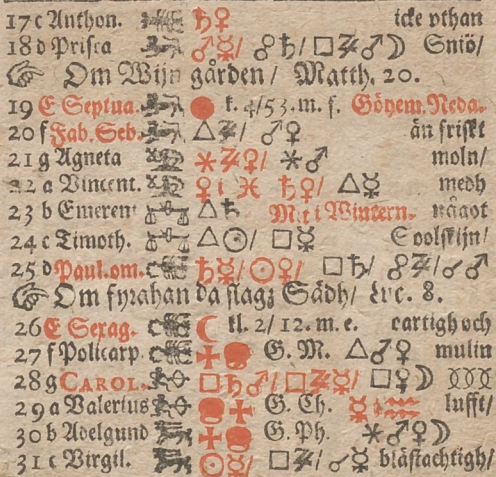 17 c Anthon. ♄♀ icke vthan
18 d Prisca ♂☿/ ☍♄/ □♃/♂☽ Sniö/
☞ Om Wijn gården/ Matth. 20.
19 E Septua. ● k. 4/53. m. f. Göyem. Neda.
20 f Fab. Seb. △♃/ ♂♀ än friskt
21 g Agneta ⚹♃♀/ ⚹♂ moln/
22 a Vincent. ♀ i ♓ ♄♀/ △☿ medh
23 b Emeren △♄ Mit i Wintern. något
24 c Timoth. △☉/ □☿ Soolskijn/
25 d Paul. om. ♄☿/☉♀/ □♄/ ☍♃/☌♂
☞ Om fyrahanda slagz Sädh/ Luc. 8.
26 E Sexag. ☾ kl. 2/12. m. e. eartigh och
27 f Policarp. G. M. △♂♀ mulin
28 g CAROL. □♄♂/□♃☿/ □♀☽
29 a Valerius G. Ch. ☿ i ♒ lufft/
30 b Adelgund G. Ph. ⚹♂♀☽
31 c Virgil. ☉☿/ □♃/☌☿ blåstachtigh/